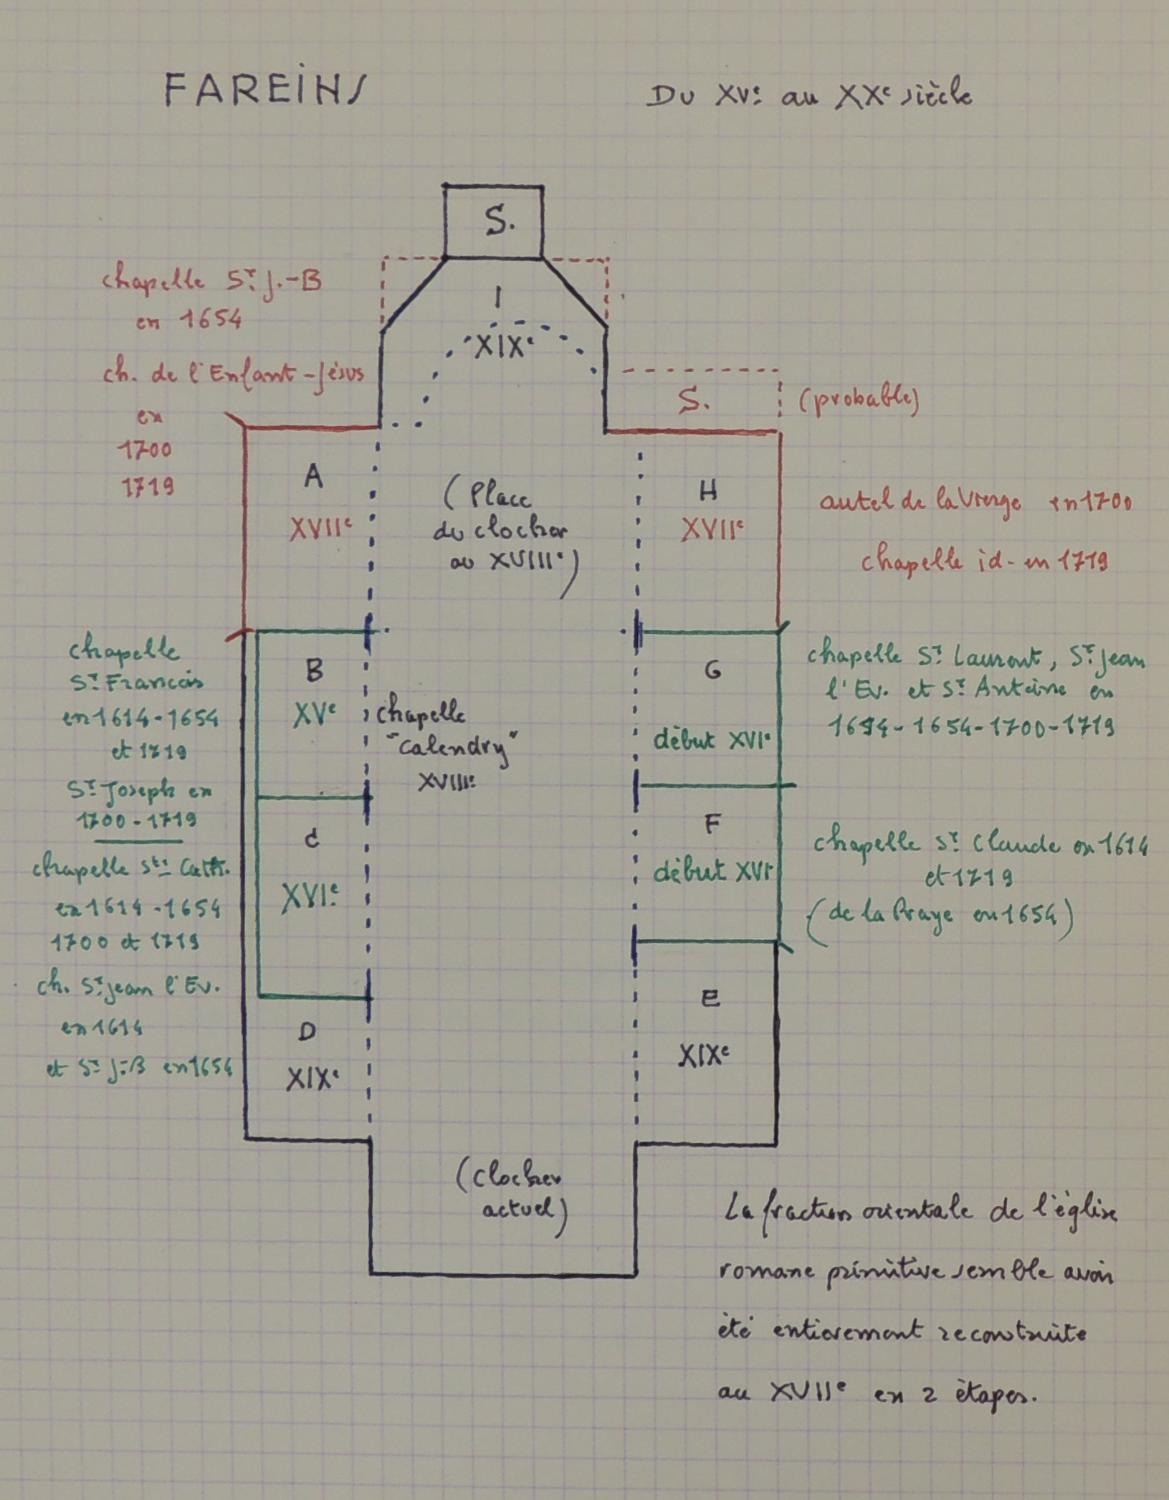 FAREINS
Du XVe au XXe siècle
S.
chapelle St J.-B
en 1654
I
XIXe
ch. de l'Enfant-Jésus
en
1700
1719
S.
(probable)
A
XVIIe
(Place
du clocher
au XVIIIe)
H
XVIIe
autel de la Vierge en 1700
chapelle id- en 1719
chapelle
St Francois
en 1614-1654
et 1719
St Joseph en
1700-1719
B
XVe
chapelle
"Calendry"
XVIIIe
G
début XVIe
chapelle St Laurent, St Jean
l'Ev. et St Antoine en
1654-1700-1719
chapelle Ste Cath.
en 1614-1654
1700 et 1719
C
XVIe
F
début XVIe
chapelle St Claude en 1614
et 1719
(de la Praye en 1654)
ch. St Jean l'Ev.
en 1614
et St J.-B en 1654
D
XIXe
E
XIXe
(Clocher
actuel)
La fraction orientale de l'église
romane primitive semble avoir
été entièrement reconstruite
au XVIIe en 2 étapes.